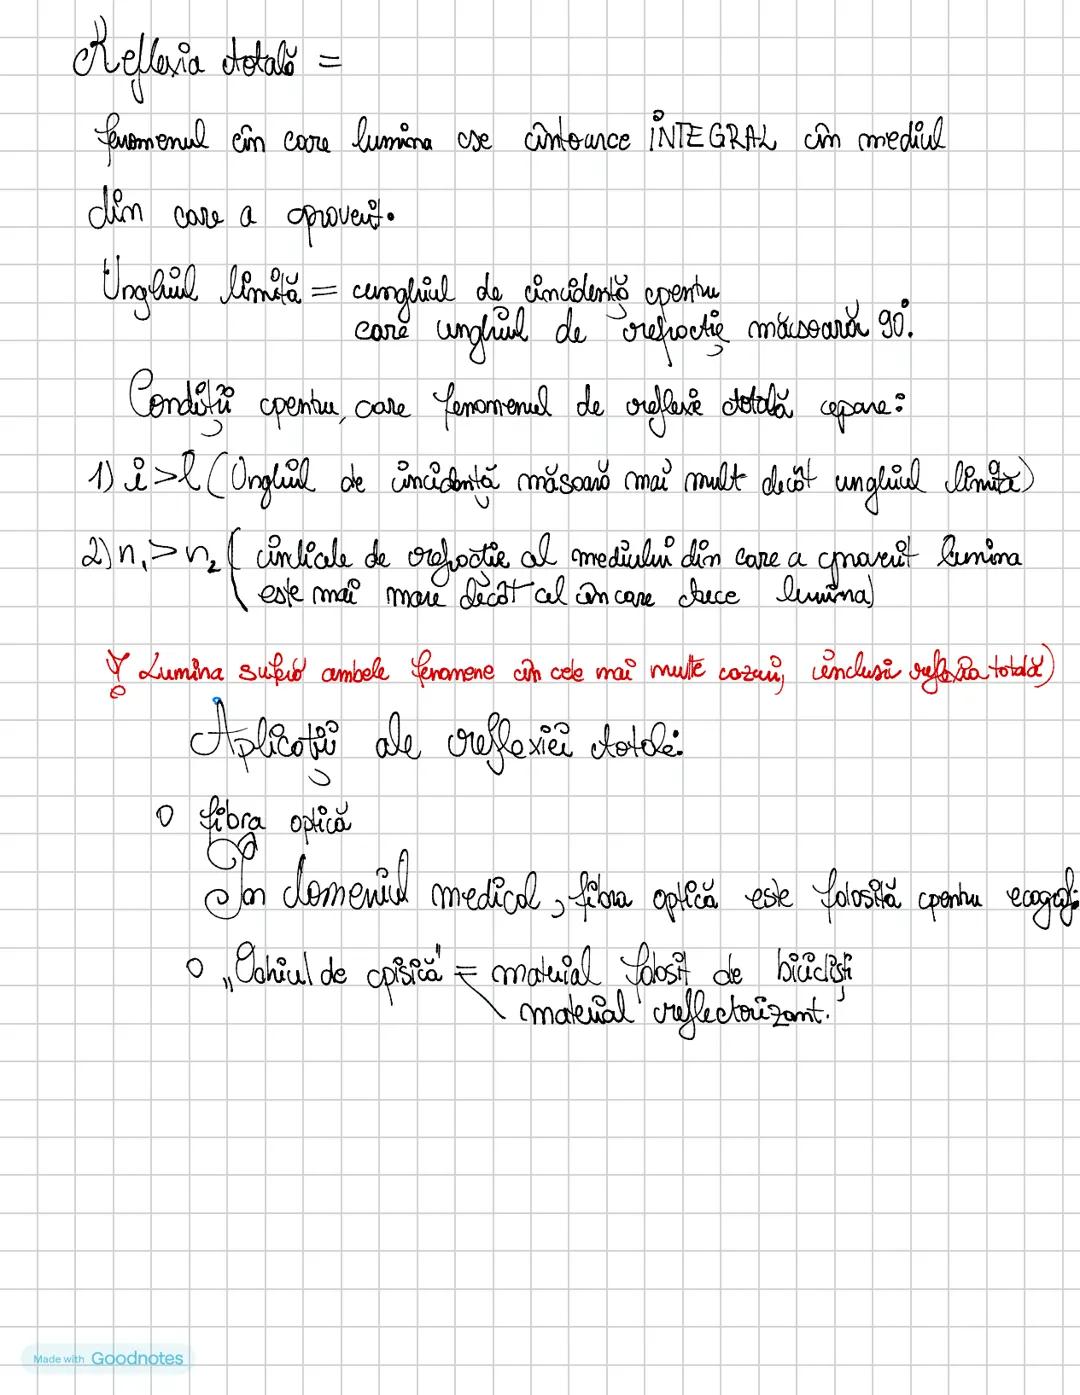 Reflexia totală =
fenomenul în care lumina se întoarce INTEGRAL în mediul
din care a provenit.
Unghiul limită = unghiul de incidență pentru
care unghiul de refracție măsoară 90°.
Condiții pentru care fenomenul de reflexie totală apare:
1) i > l (Unghiul de incidență măsoară mai mult decât unghiul limită)
2) n₁ > n₂ ( indicele de refracție al mediului din care a provenit lumina
este mai mare decât cel în care trece lumina)
! Lumina suferă ambele fenomene în cele mai multe cazuri, inclusiv reflexia totală)
Aplicații ale reflexiei totale:
o fibra optică
În domeniul medical, fibra optică este folosită pentru
o „Ochiul de pisică” = material folosit de bicicliști
material reflectorizant.
Made with Goodnotes